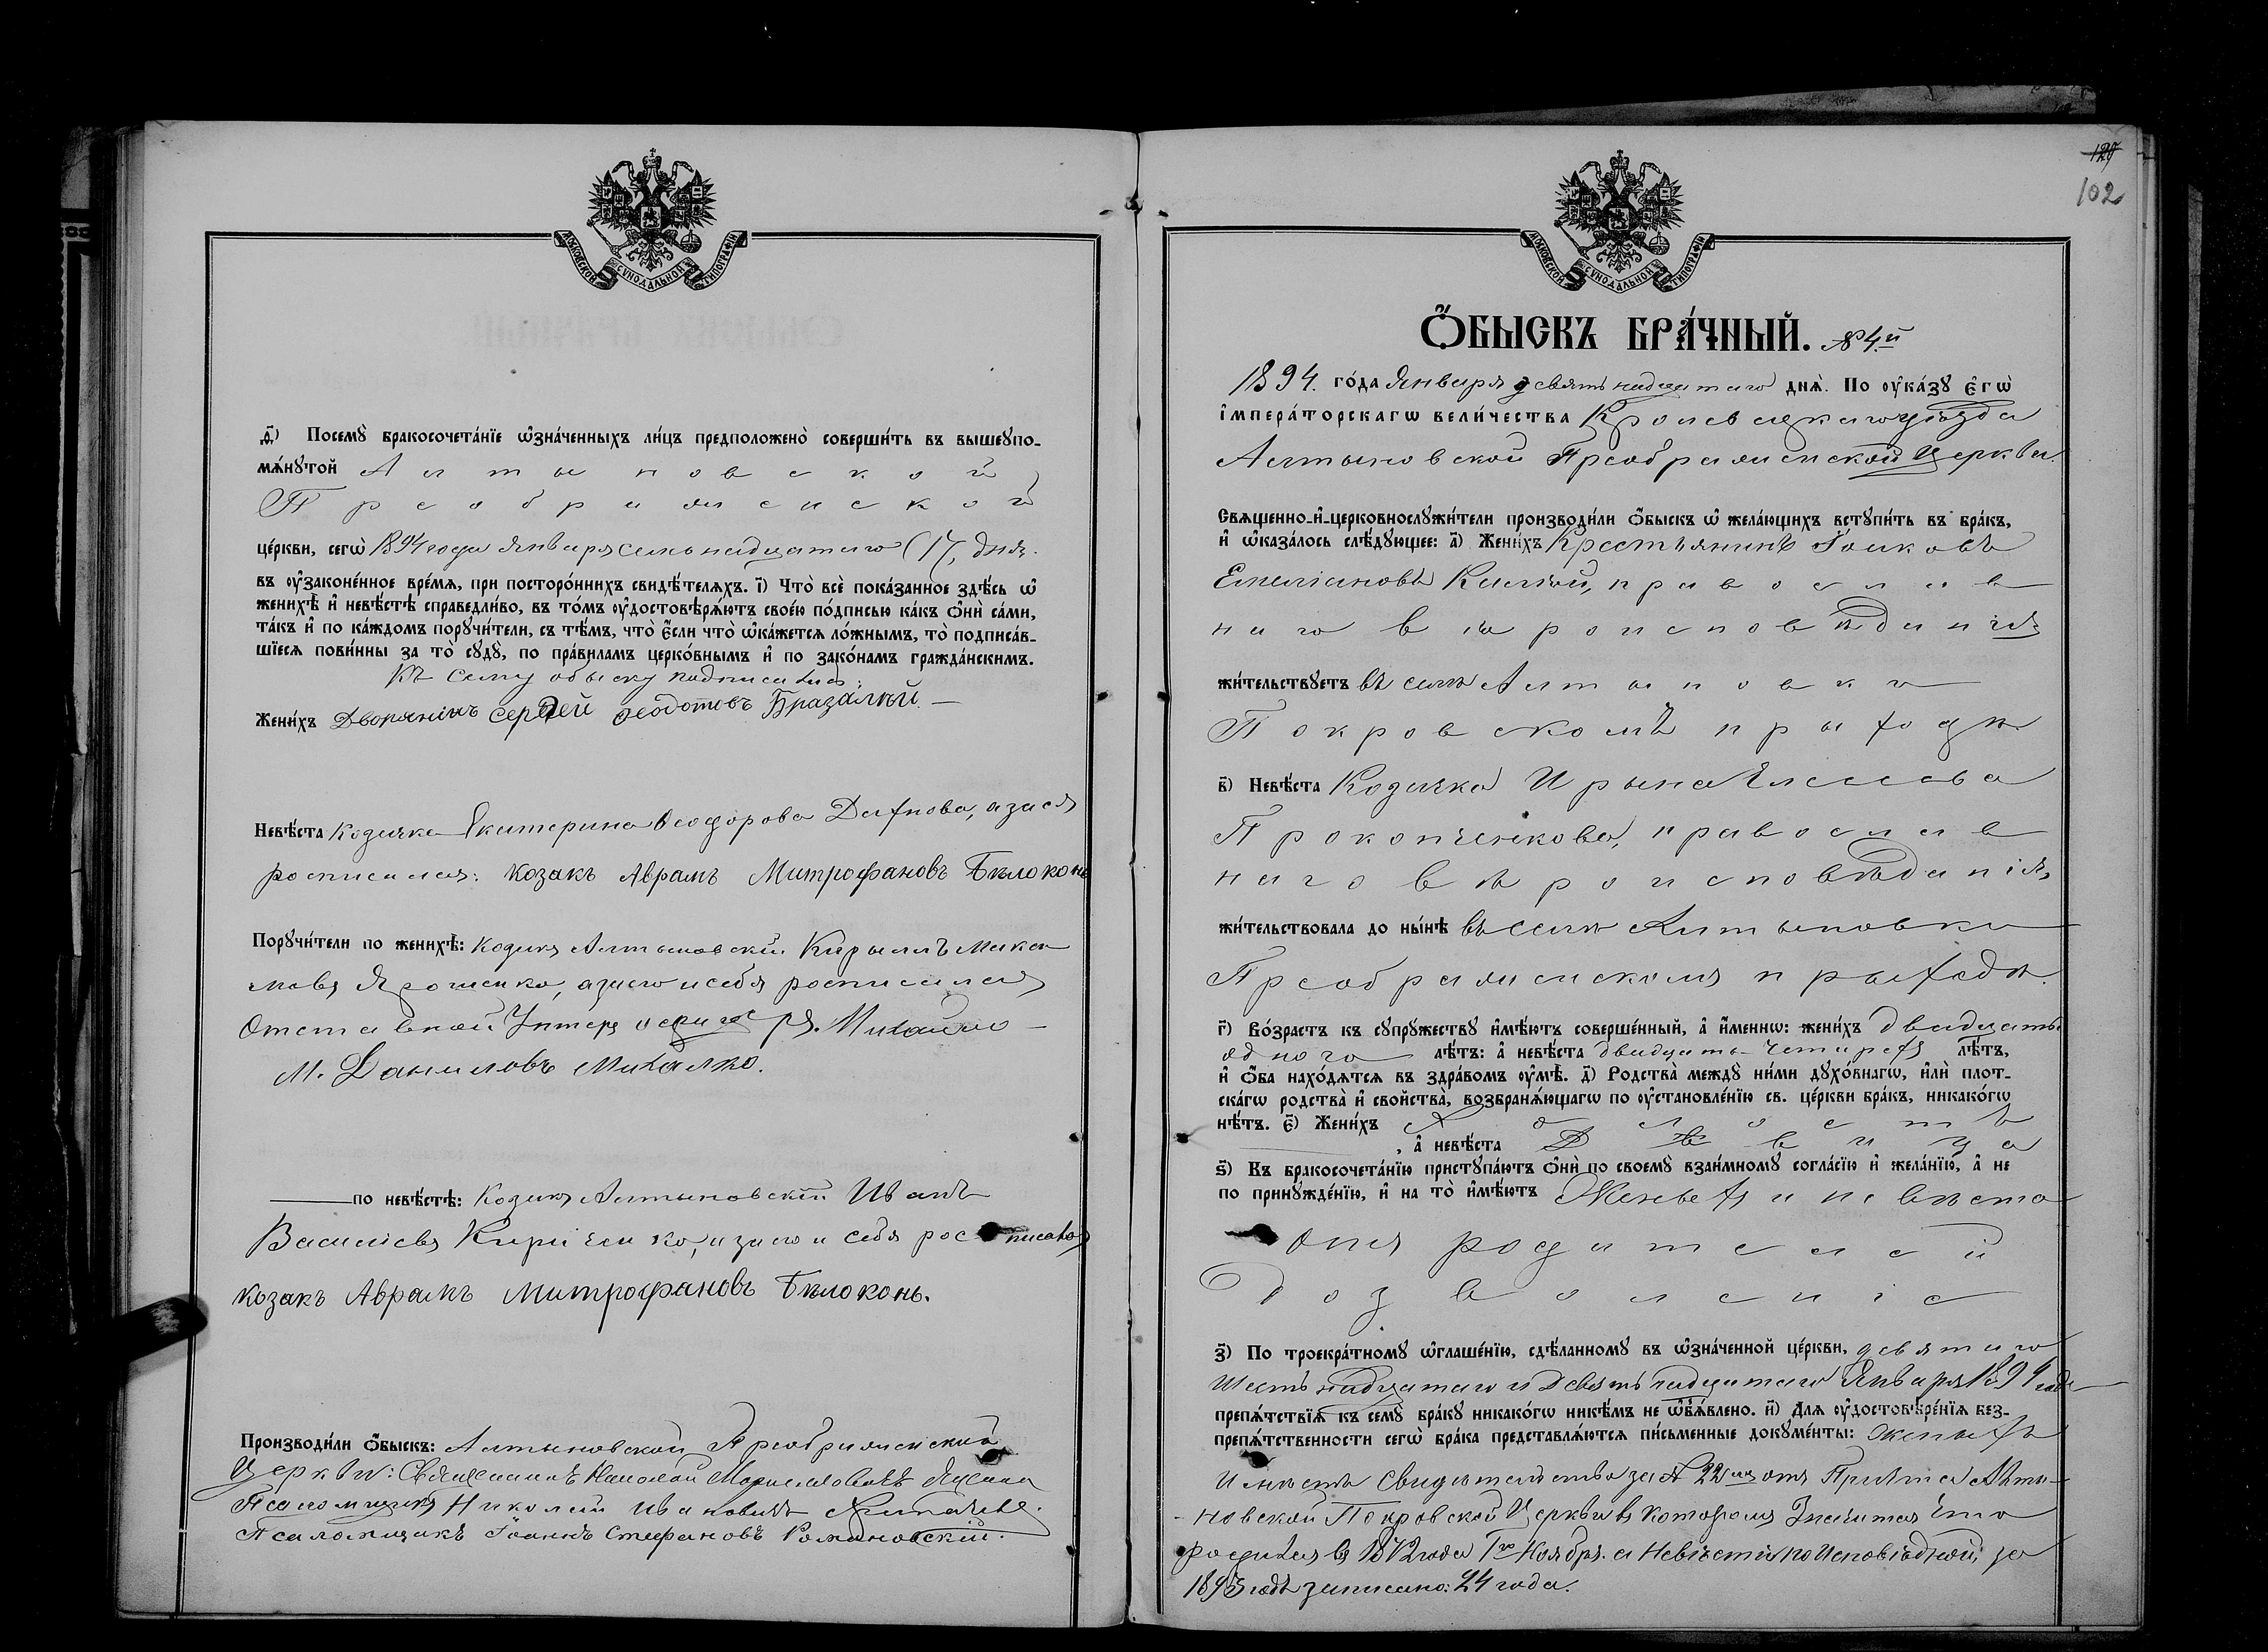 МОСКОВСКОЙ СѴНОДАЛЬНОЙ ТИПОГРАФІИ
д҃) Посемꙋ̀ бракосочета́нїе ѡ҆зна́ченныхъ ли́цъ предположено̀ соверши́ть въ вышеꙋпо-
мѧ́нꙋтой Алтыновской
Преображенской
це́ркви, сегѡ̀ 1894 года Января семьнадцатаго (17) дня.
въ ᲂу҆законе́нное вре́мѧ, при посторо́ннихъ свидѣ́телѧхъ. і҃) Что̀ всѐ пока́занное здѣ́сь ѡ҆
женихѣ̀ и҆ невѣ́стѣ справедли́во, въ то́мъ ᲂу҆достовѣрѧ́ютъ свое́ю по́дписью ка́къ ѻ҆нѝ са́ми,
та́къ и҆ по ка́ждомъ порꙋчи́тели, съ тѣ́мъ, что̀ є҆́сли что̀ ѡ҆ка́жетсѧ ло́жнымъ, то̀ подписа́в-
шїесѧ пови́нны за то̀ сꙋдꙋ̀, по пра́виламъ церко́внымъ и҆ по зако́намъ гражда́нскимъ.
Къ сему обыску подписались:
Жени́хъ Дворянинъ Сергей Феодотовъ Бразалый
Невѣ́ста Козачка Екатерина Феодорова Дахнова, а за ея
росписался: козакъ Аврамъ Митрофановъ Бѣлоконь
Порꙋчи́тели по женихѣ̀: Козакъ Алтыновскій Кирыллъ Макси
мовъ Ярошенко, а за его и себя росписался
Отставной Унтеръ офицеръ. Михайло
М. Даниловъ Михалко.
по невѣ́стѣ: Козакъ Алтыновскій Иванъ
Василіевъ Кириченко, а за его и себя росписался
козакъ Аврамъ Митрофановъ Бѣлоконь.
Производи́ли ѻ҆́быскъ: Алтыновской Преображенской
Церкви: Священникъ Николай
Псаломщикъ Николай Ивановичъ
Псаломщикъ Іоаннъ Стефановъ Романовскій.
129
102
МОСКОВСКОЙ СѴНОДАЛЬНОЙ ТИПОГРАФІИ
Ѻ҆́БЫСКЪ БРА́ЧНЫЙ. №4.й
1894. го́да Января девятьнадцатаго днѧ̀. По ᲂу҆ка́зꙋ є҆гѡ̀
і҆мпера́торскагѡ вели́чества Кролевецкаго уѣзда
Алтыновской Преображенской Церкви
Свѧщенно-и҆-церковнослꙋжи́тели производи́ли ѻ҆́быскъ ѡ҆ жела́ющихъ встꙋпи́ть въ бра́къ,
и҆ ѡ҆каза́лось слѣ́дꙋющее: а҃) Жени́хъ Крестьянинъ Іаковъ
Емиліановъ православ
наго вѣроисповѣданія
жи́тельствꙋетъ въ селѣ Алтыновки
Покровскомъ прыходѣ
в҃) Невѣ́ста Козачка Ирына Елисеева
Прокопченкова, православ
наго вѣроисповѣданія,
жи́тельствовала до ны́нѣ въ селѣ Алтыновки
Преображенскомъ прыходѣ.
г҃) Во́зрастъ къ сꙋпрꙋ́жествꙋ и҆мѣ́ютъ соверше́нный, а҆ и҆́меннѡ: жени́хъ двадцать
одного лѣ́тъ: а҆ невѣ́ста двадцать четырехъ лѣ́тъ,
и҆ ѻ҆́ба нахо́дѧтсѧ въ здра́вомъ ᲂу҆мѣ̀. д҃) Родства̀ междꙋ̀ ни́ми дꙋхо́внагѡ, и҆лѝ плот-
ска́гѡ родства̀ и҆ свойства̀, возбранѧ́ющагѡ по ᲂу҆становле́нїю св. це́ркви бра́къ, никако́гѡ
нѣ́тъ. є҃) Жени́хъ Холостъ
, а҆ невѣ́ста Дѣвица
ѕ҃) Къ бракосочета́нїю пристꙋпа́ютъ ѻ҆нѝ по своемꙋ̀ взаи́мномꙋ согла́сїю и҆ жела́нїю, а҆ не
по принꙋжде́нїю, и҆ на то̀ и҆мѣ́ютъ Женыхъ и невѣста
отъ родителей
дозволеніе
з҃) По троекра́тномꙋ ѡ҆глаше́нїю, сдѣ́ланномꙋ въ ѡ҆зна́ченной це́ркви, девятаго
Шестьнадцатаго и Девятьнадцатаго Января 1894 года
препѧ́тствїѧ къ семꙋ̀ бра́кꙋ никако́гѡ никѣ́мъ не ѡ҆б̾ѧ́влено. и҃) Длѧ ᲂу҆достовѣре́нїѧ без-
препѧ́тственности сегѡ̀ бра́ка представлѧ́ютсѧ пи́сьменные докꙋме́нты: женыхъ
Имѣетъ Свидетельство за № 22 отъ Причта Алты-
новской Покровской Церкви въ которомъ Значится что
родился въ 1872 года 1го Ноября. а Невѣста по Исповѣдной за
1893 годъ записано: 24 года.